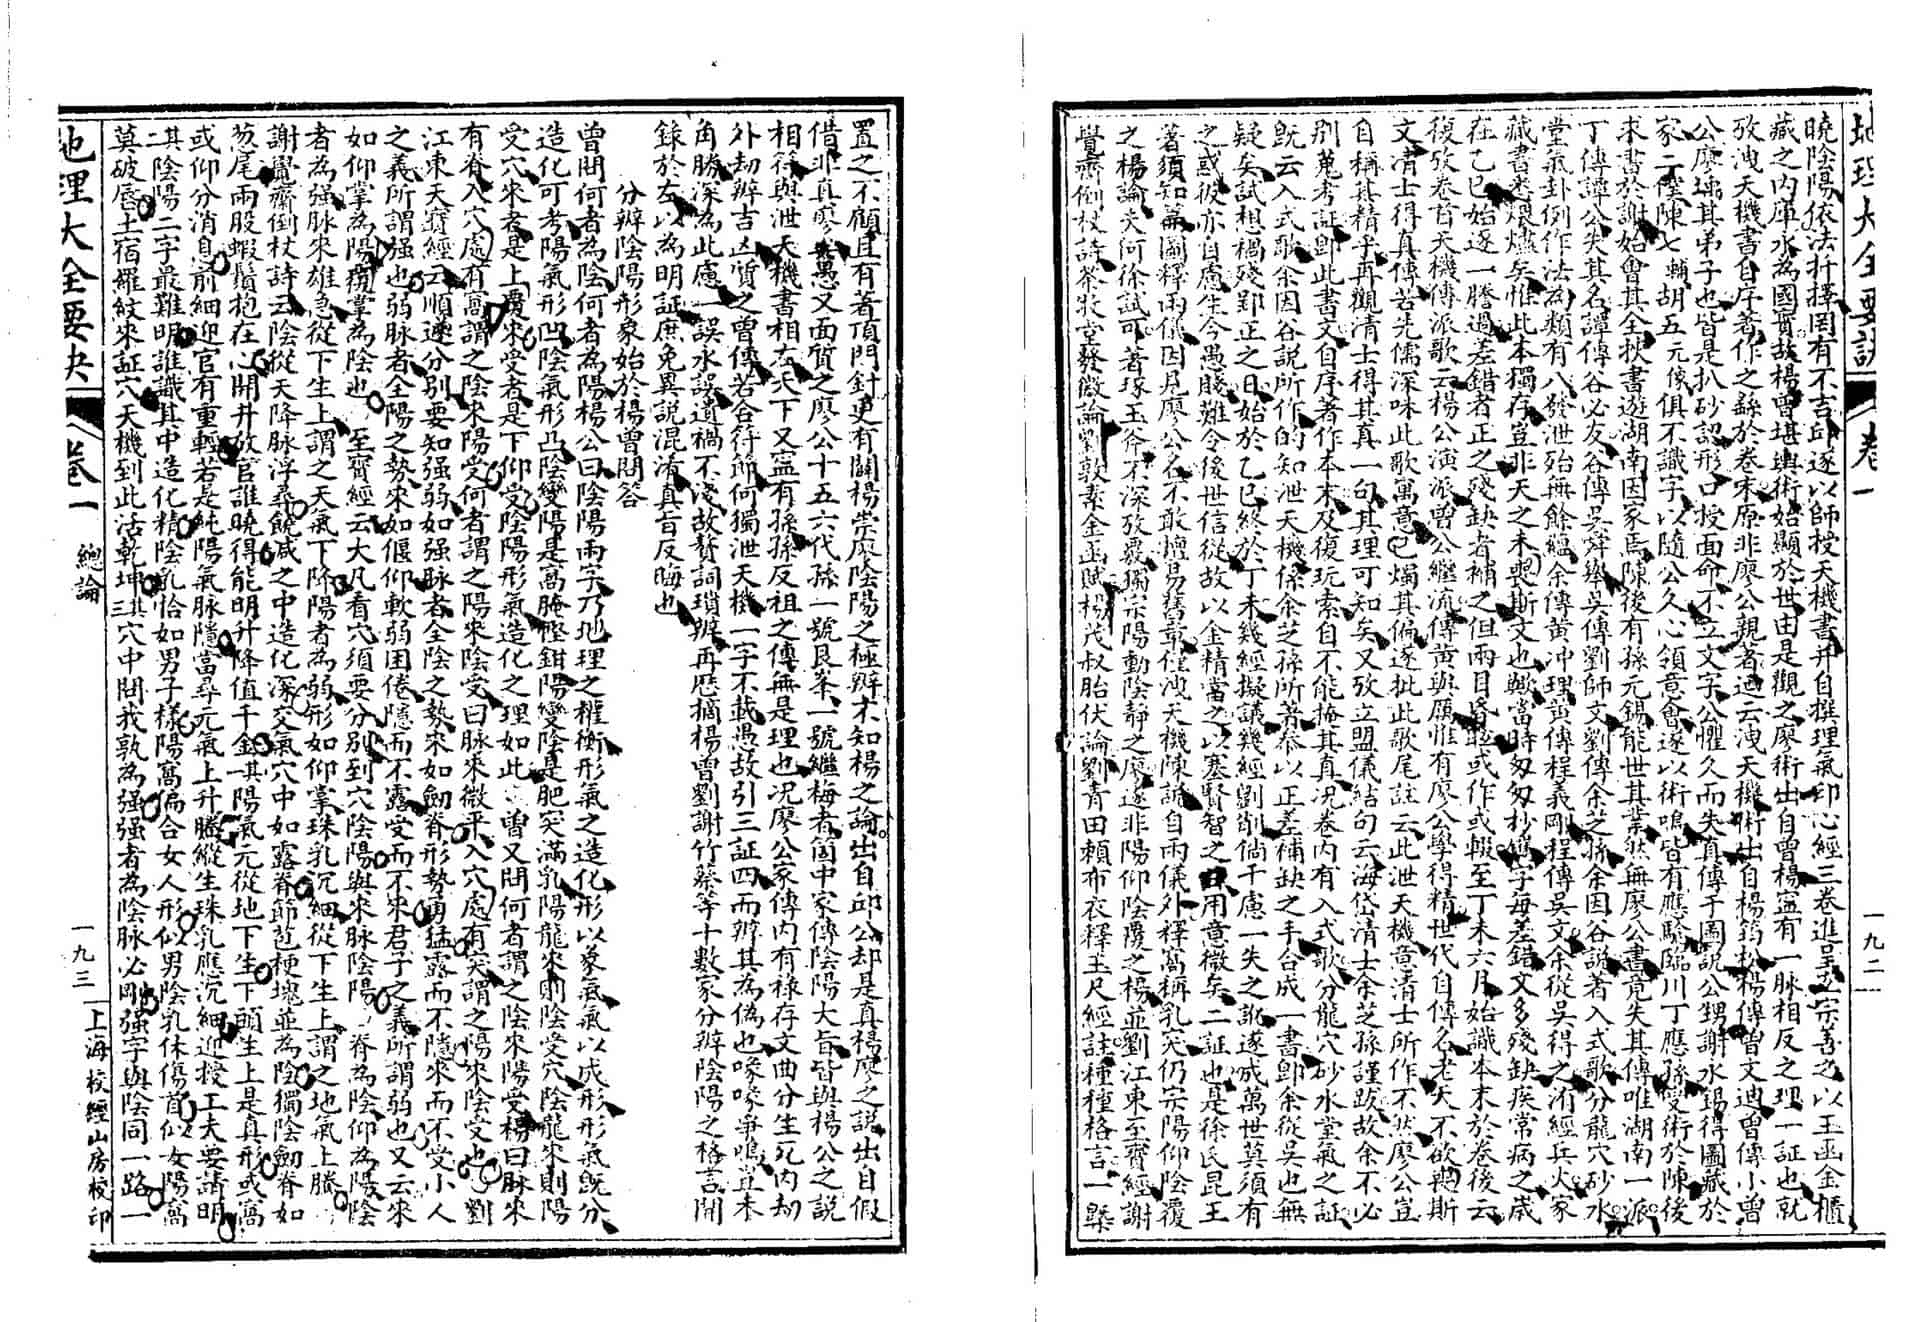 地理大全要訣 卷一 一九二
曉陰陽依法扦擇罔有不吉邱遂以師授天機書并自撰理氣印心經三卷進呈玄宗善之以玉函金櫃
藏之内庫永為國寶故楊曾堪輿術始顯於世由是觀之廖術出自曾楊寧有一脉相反之理一証也就
攷洩天機書自序著作之繇於卷末原非廖公親著廼云洩天機術出自楊筠松楊傳曾文迪曾傳小曾
公廖瑀其弟子也皆是扒砂認形口授面命不立文字公懼久而失真傳于圖説公甥謝水錫得圖藏於
家二陞陳七輔胡五元像俱不識字以隨公久心領意會遂以術鳴皆有應驗臨川丁應孫受術於陳後
来書於謝始會其全挾書遊湖南因家焉陳後有孫元錫能世其業然無廖公書竟失其傳唯湖南一派
丁傳譚公失其名譚傳谷必友谷傳吳舜舉吳傳劉師文劉傳余芝孫余因谷説者入式歌分龍穴砂水
堂氣卦例作法為類有八發泄殆無餘蘊余傳黄冲理黄傳程義剛程傳吳文余從吳得之洊經兵火家
藏書悉煨燼矣惟此本獨存豈非天之未喪斯文也歟當時匆匆抄謄字每差錯文多殘缺疾常病之歲
在乙巳始逐一謄過差錯者正之殘缺者補之但兩目昏眩或作或輟至丁未六月始識本末於卷後云
復攷卷首天機傳派歌云楊公演派曾公繼流傳黄與厲惟有廖公學得精世代自傳名老天不欲興斯
文清士得真傳若先儒深味此歌寓意已燭其偏遂批此歌尾註云此泄天機章清士所作不然廖公豈
自稱其精乎再觀清士得其真一句其理可知矣又攷立盟儀結句云海岱清士余芝孫謹跋故余不必
别蒐考証卽此書文自序者作本末及復玩索自不能掩其真况卷内有入式歌分龍穴砂水堂氣之証
旣云入式歌余因谷説所作的知泄天機係余芝孫所著恭以正差補缺之手合成一書卽余從吳也無
疑矣試想楊殘鄞正之日始於乙巳終於丁未幾經擬議幾經劉削倘千慮一失之訛遂成萬世莫須有
之惑彼亦自慮生今愚賤難令後世信從故以金精當之以塞賢智之口用意微矣二証也是徐氏昆王
著須知篇圖釋兩儀因見廖公名不敢擅易舊章僅洩天機陳説自兩儀外釋窩稱乳突仍宗陽仰陰覆
之楊論夫何徐試可著琢玉斧不深攷覈獨宗陽動陰靜之廖遂非陽仰陰覆之楊並劉江東至寳經謝
覺齋倒杖詩蔡牧堂發微論劉敦素金函賦楊茂叔胎伏論劉青田賴布衣釋玉尺經註種種格言一槩
置之不顧且有著頂門針更有闢楊崇廖陰陽之極辯不知楊之論出自邱公却是真楊廖之説出自假
借非真廖矣愚又面質之廖公十五六代孫一號艮峯一號繼梅者箇中家傳陰陽大旨皆與楊公之説
相符與泄天機書相左天下又寧有孫孫反祖之傳無是理也况廖公家傳内有祿存文曲分生死内劫
外劫辨吉凶質之曾傳若合符節何獨泄天機一字不載愚故引三証四而辨其為偽也喙喙爭鳴豈未
角勝深為此慮一誤水誤遺禍不淺故贅詞瑣辨再歷摘楊曾劉謝竹蔡等十數家分辨陰陽之格言開
錄於左以為明証庶免異説混淆真旨反晦也
分辨陰陽形象始於楊曾問答
曾問何者為陰何者為陽楊公曰陰陽兩字乃地理之權衡形氣之造化形以象氣氣以成形形氣旣分
造化可考陽氣形凹陰氣形凸陰變陽是窩腌慳鉗陽變陰是肥突滿乳陽龍來則陰受穴陰龍來則陽
受穴來者是上覆來受者是下仰受陰陽形氣造化之理如此曾又問何者謂之陰來陽受楊曰脉來
有脊入穴處有窩謂之陰來陽受何者謂之陽來陰受曰脉來微平入穴處有突謂之陽來陰受也劉
江東天寳經云順逆分别要知强弱如强脉者全陰之勢來如劍脊形勢勇猛露而不隱來而不受小人
之義所謂强也弱脉者全陽之勢來如偃仰軟弱困倦隱而不露受而不來君子之義所謂弱也又云來
如仰掌為陽覆掌為陰也至寳經云大凡看穴須要分别到穴陰陽與來脉陰陽脊為陰仰為陽陰
者為强脉來雄急從下生上謂之天氣下降陽者為弱形如仰掌珠乳沉細從下生上謂之地氣上騰
謝覺齋倒杖詩云陰從天降脉浮尋饒减之中造化深交氣穴中如露脊節苞梗塊並為陰獨陰劍脊如
葱尾兩股蝦鬚抱在心開井放官誰曉得能明升降值千金其陽氣元從地下生下頭生上是真形或窩
或仰分消息前細迎官有重輕若是純陽氣脉隱當尋元氣上升騰縱生珠乳應沉細迎接工夫要請明
其二陰陽二字最難明誰識其中造化精陰乳恰如男子樣陽窩偏合女人形似男陰乳休傷首似女陽窩
莫破唇土宿羅紋來証穴天機到此活乾坤其三穴中問我孰為强强者為陰脉必剛强字與陰同一路一
地理大全要訣 卷一 總論 一九三 上海校經山房校印